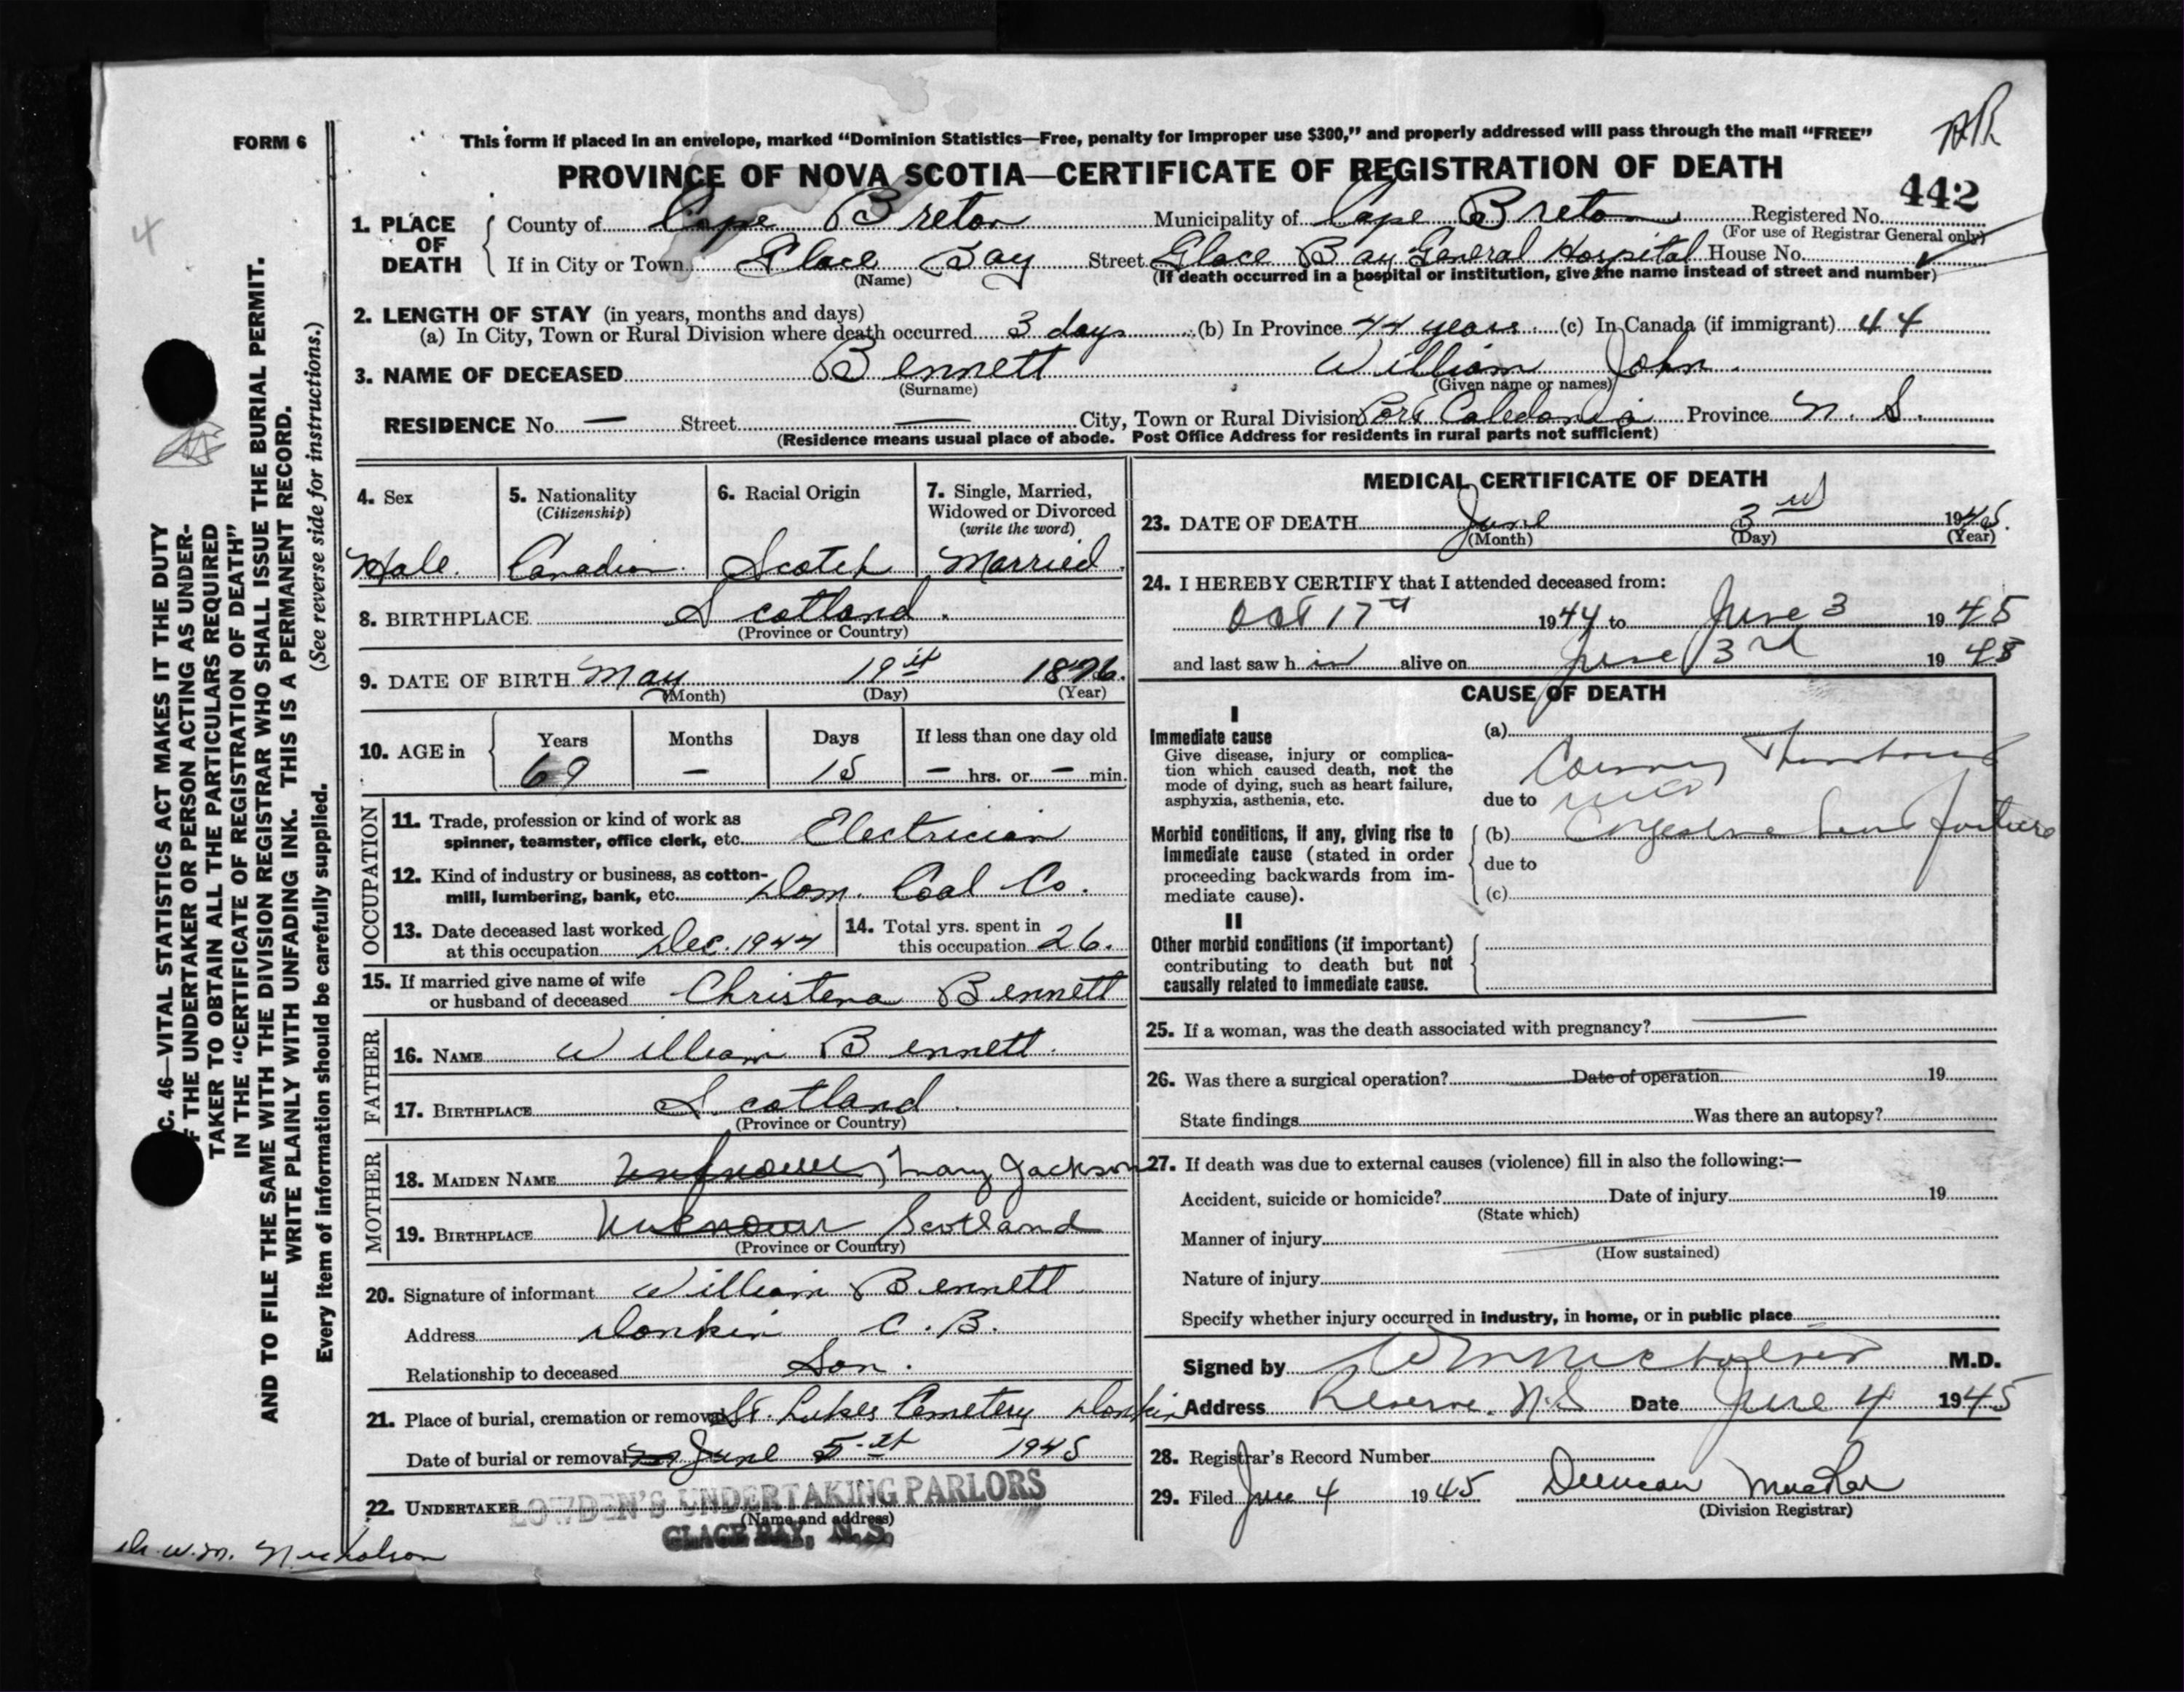 FORM 6
This form if placed in an envelope, marked “Dominion Statistics—Free, penalty for improper use $300,” and properly addressed will pass through the mail “FREE”
PROVINCE OF NOVA SCOTIA—CERTIFICATE OF REGISTRATION OF DEATH
442
4
1. PLACE OF DEATH
County of Cape Breton Municipality of Cape Breton Registered No.
(For use of Registrar General only)
If in City or Town Glace Bay Street Glace Bay General Hospital House No.
(Name) (If death occurred in a hospital or institution, give the name instead of street and number)
2. LENGTH OF STAY (in years, months and days)
(a) In City, Town or Rural Division where death occurred 3 days (b) In Province 44 years (c) In Canada (if immigrant) 44
3. NAME OF DECEASED Bennett William John.
(Surname) (Given name or names)
RESIDENCE No. — Street — City, Town or Rural Division Port Caledonia Province N. S.
(Residence means usual place of abode. Post Office Address for residents in rural parts not sufficient)
C. 46—VITAL STATISTICS ACT MAKES IT THE DUTY
F THE UNDERTAKER OR PERSON ACTING AS UNDER-
TAKER TO OBTAIN ALL THE PARTICULARS REQUIRED
IN THE “CERTIFICATE OF REGISTRATION OF DEATH”
AND TO FILE THE SAME WITH THE DIVISION REGISTRAR WHO SHALL ISSUE THE BURIAL PERMIT.
WRITE PLAINLY WITH UNFADING INK. THIS IS A PERMANENT RECORD.
Every item of information should be carefully supplied. (See reverse side for instructions.)
4. Sex
Male.
5. Nationality
(Citizenship)
Canadian.
6. Racial Origin
Scotch
7. Single, Married,
Widowed or Divorced
(write the word)
Married.
8. BIRTHPLACE Scotland.
(Province or Country)
9. DATE OF BIRTH May 19th 1876.
(Month) (Day) (Year)
10. AGE in
Years Months Days If less than one day old
69 — 15 — hrs. or — min.
OCCUPATION
11. Trade, profession or kind of work as
spinner, teamster, office clerk, etc. Electrician
12. Kind of industry or business, as cotton-
mill, lumbering, bank, etc. Dom. Coal Co.
13. Date deceased last worked
at this occupation Dec. 1944
14. Total yrs. spent in
this occupation 26.
15. If married give name of wife
or husband of deceased Christena Bennett
FATHER
16. NAME William Bennett.
17. BIRTHPLACE Scotland.
(Province or Country)
MOTHER
18. MAIDEN NAME Unknown Mary Jackson
19. BIRTHPLACE Unknown Scotland
(Province or Country)
20. Signature of informant William Bennett
Address Donkin C. B.
Relationship to deceased Son.
21. Place of burial, cremation or removal St. Lukes Cemetery Donkin
Date of burial or removal June 5th 1945
22. UNDERTAKER LOWDEN'S UNDERTAKING PARLORS
(Name and address)
GLACE BAY, N.S.
Dr. W. M. Nicholson
MEDICAL CERTIFICATE OF DEATH
23. DATE OF DEATH June 3rd 1945.
(Month) (Day) (Year)
24. I HEREBY CERTIFY that I attended deceased from:
Oct 17th 1944 to June 3 1945
and last saw h im alive on June 3rd 1945
CAUSE OF DEATH
I
Immediate cause
Give disease, injury or complica-
tion which caused death, not the
mode of dying, such as heart failure,
asphyxia, asthenia, etc.
(a) Coronary Thrombosis
due to
Morbid conditions, if any, giving rise to
immediate cause (stated in order
proceeding backwards from im-
mediate cause).
(b) Congestive heart failure
due to
(c)
II
Other morbid conditions (if important)
contributing to death but not
causally related to immediate cause.
25. If a woman, was the death associated with pregnancy? —
26. Was there a surgical operation? Date of operation 19
State findings Was there an autopsy?
27. If death was due to external causes (violence) fill in also the following:—
Accident, suicide or homicide? Date of injury 19
(State which)
Manner of injury
(How sustained)
Nature of injury
Specify whether injury occurred in industry, in home, or in public place
Signed by W M Nicholson M.D.
Address Reserve. N.S Date June 4 1945
28. Registrar's Record Number
29. Filed June 4 1945 Duncan MacRae
(Division Registrar)